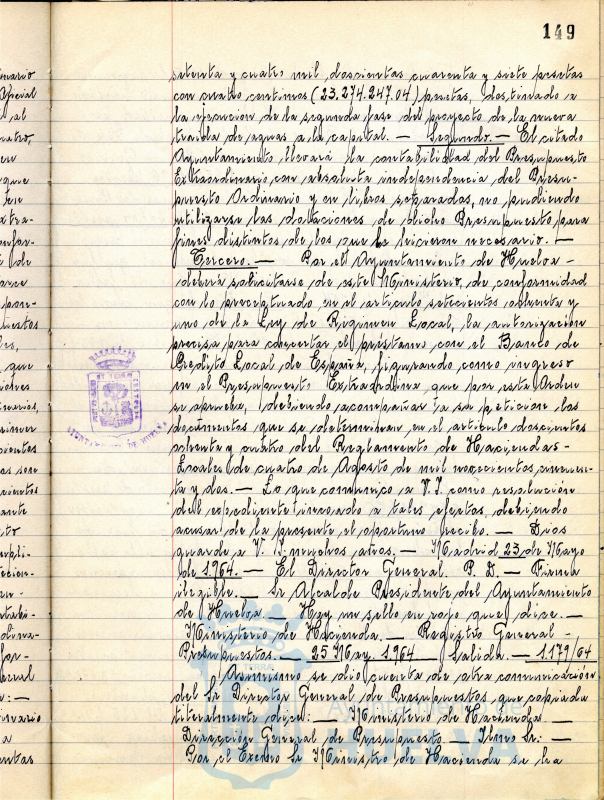 149
setenta y cuatro mil, doscientas cuarenta y siete pesetas
con cuatro centimos (23.274.247.04) pesetas, destinado a
la ejecucion de la segunda fase del proyecto de la nueva
traida de aguas a la capital. — Segundo. — El citado
Ayuntamiento llevará la contabilidad del Presupuesto
Extraordinario, con absoluta independencia del Presu-
puesto Ordinario y en libros separados, no pudiendo
utilizarse las dotaciones de dicho Presupuesto para
fines distintos de los que le hicieron necesario. —
Tercero. — Por el Ayuntamiento de Huelva -
deberá solicitarse de este Ministerio, de conformidad
con lo preceptuado en el articulo setecientos ochenta y
uno de la Ley de Régimen Local, la autorización
precisa para concertar el prestamo con el Banco de
Credito Local de España, figurando como ingreso
en el Presupuesto Extraordinario que por esta Orden
se aprueba, debiendo acompañar a su peticion los
documentos que se determinan en el articulo doscientos
ochenta y cuatro del Reglamento de Haciendas -
Locales de cuatro de Agosto de mil novecientos cincuen-
ta y dos. — Lo que comunico a V. I. como resolución
del expediente incoado a tales efectos, debiendo
acusar de la presente el oportuno recibo. — Dios
guarde a V. I. muchos años. — Madrid 23 de Mayo
de 1.964. — El Director General. P. D. — Firma
ilegible. — Sr Alcalde Presidente del Ayuntamiento
de Huelva. — Hay un sello en rojo que dice. —
Ministerio de Hacienda. — Registro General -
Presupuestos. — 25 May. 1.964 Salida. — 1.179/64
Asimismo se dio cuenta de otra comunicación
del Sr Director General de Presupuestos que copiada
literalmente dice: — Ministerio de Hacienda. —
Dirección General de Presupuesto. — Ilmo Sr: —
Por el Excmo Sr Ministro de Hacienda se ha
AYUNTAMIENTO DE HUELVA
Ayuntamiento de
HUELVA